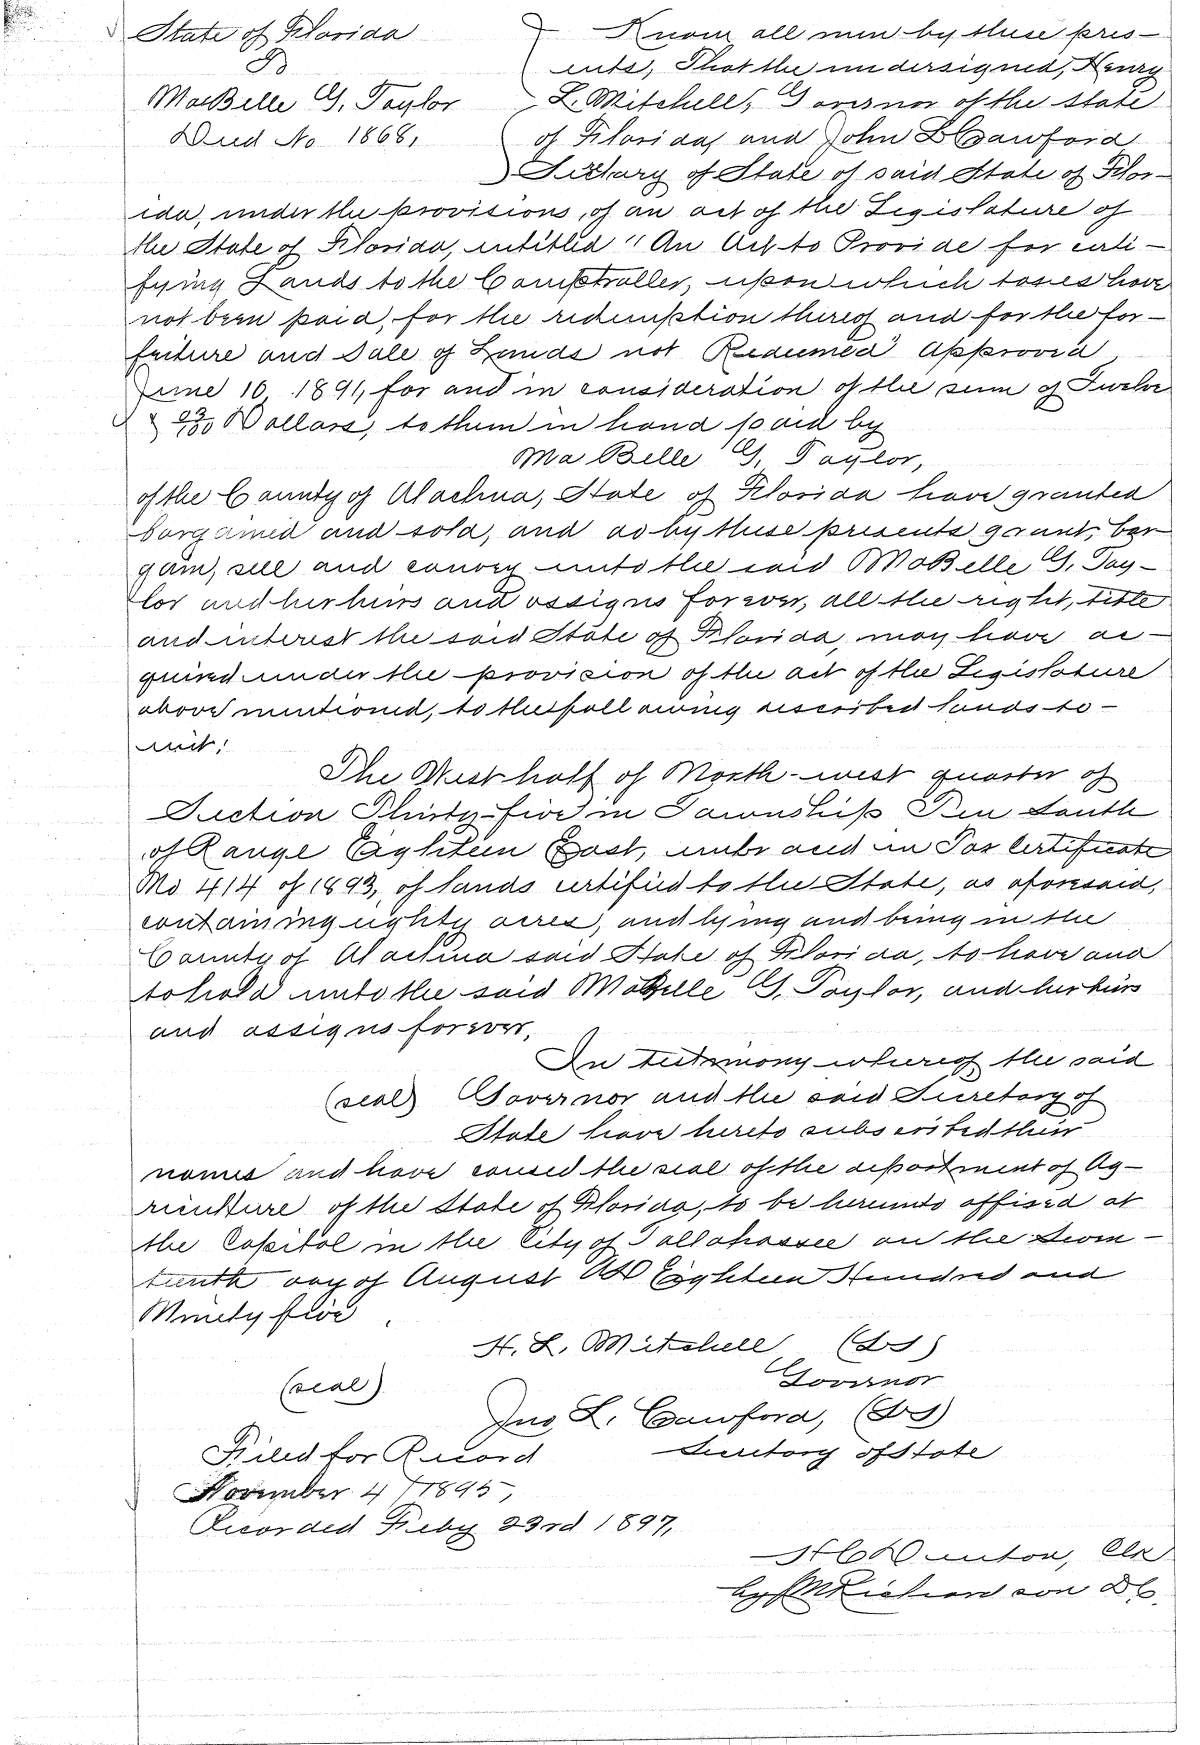 State of Florida
To
MaBelle G. Taylor
Deed No 1868,
Know all men by these pres-
ents, That the undersigned, Henry
L. Mitchell, Governor of the State
of Florida, and John L Crawford
Secretary of State of said State of Flor-
ida, under the provisions, of an act of the Legislature of
the State of Florida, entitled "An Act to Provide for certi-
fying Lands to the Comptroller, upon which taxes have
not been paid, for the redemption thereof and for the for-
feiture and Sale of Lands not Redeemed" Approved,
June 10, 1891, for and in consideration of the sum of Twelve
& /100 Dollars, to them in hand paid by
MaBelle G. Taylor,
of the County of Alachua, State of Florida have granted
bargained and sold, and do by these presents grant, bar
gain, sell and convey unto the said MaBelle G. Tay-
lor and her heirs and assigns forever, all the right, title
and interest the said State of Florida, may have ac-
quired under the provision of the act of the Legislature
above mentioned, to the following described lands to-
wit:
The West half of North-west quarter of
Section Thirty-five in Township Ten South
of Range Eighteen East, embraced in Tax Certificate
No 414 of 1893, of lands certified to the State, as aforesaid,
containing eighty acres, and lying and being in the
County of Alachua said State of Florida, to have and
to hold unto the said MaBelle G. Taylor, and her heirs
and assigns forever.
In testimony whereof the said
(seal) Governor and the said Secretary of
State have hereto subscribed their
names and have caused the seal of the department of Ag-
riculture of the State of Florida, to be hereunto affixed at
the Capitol in the City of Tallahassee on the Seven-
teenth day of August AD Eighteen Hundred and
Ninety five
H. L. Mitchell (LS)
Governor
(seal)
Jno. L. Crawford, (LS)
Secretary of State
Filed for Record
November 4 / 1895,
Recorded Feby 23rd 1897,
H C Denton, Clk
by Richardson DC.